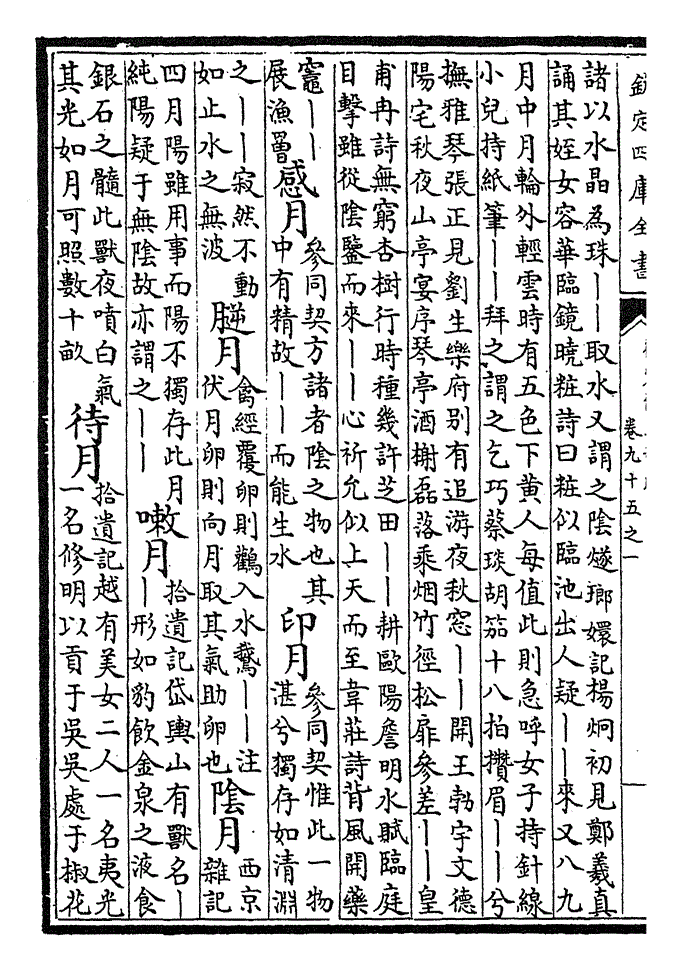 欽定四庫全書
卷九十五之一
諸以水晶為珠丨丨取水又謂之陰燧瑯嬛記楊炯初見鄭羲真
誦其姪女容華臨鏡曉粧詩曰粧似臨池出人疑丨丨來又八九
月中月輪外輕雲時有五色下黄人每值此則急呼女子持針線
小兒持紙筆丨丨拜之謂之乞巧蔡琰胡笳十八拍攢眉丨丨兮
撫雅琴張正見劉生樂府别有追游夜秋窓丨丨開王勃宇文德
陽宅秋夜山亭宴序琴亭酒榭磊落乘烟竹徑松扉參差丨丨皇
甫冉詩無窮杏樹行時種幾許芝田丨丨耕歐陽詹明水賦臨庭
目擊雖從陰鑒而來丨丨心祈允似上天而至韋莊詩背風開藥
竈丨丨
展漁罾
感月
參同契方諸者陰之物也其
中有精故丨丨而能生水
印月
參同契惟此一物
湛兮獨存如清淵
之丨丨寂然不動
如止水之無波
月
禽經覆卵則鸛入水鶩丨丨注
伏月卵則向月取其氣助卵也
陰月
西京
雜記
四月陽雖用事而陽不獨存此月
純陽疑于無陰故亦謂之丨丨
嗽月
拾遺記岱輿山有獸名丨
丨形如豹飲金泉之液食
銀石之髓此獸夜噴白氣
其光如月可照數十畝
待月
拾遺記越有美女二人一名夷光
一名修明以貢于吳吳處于椒花